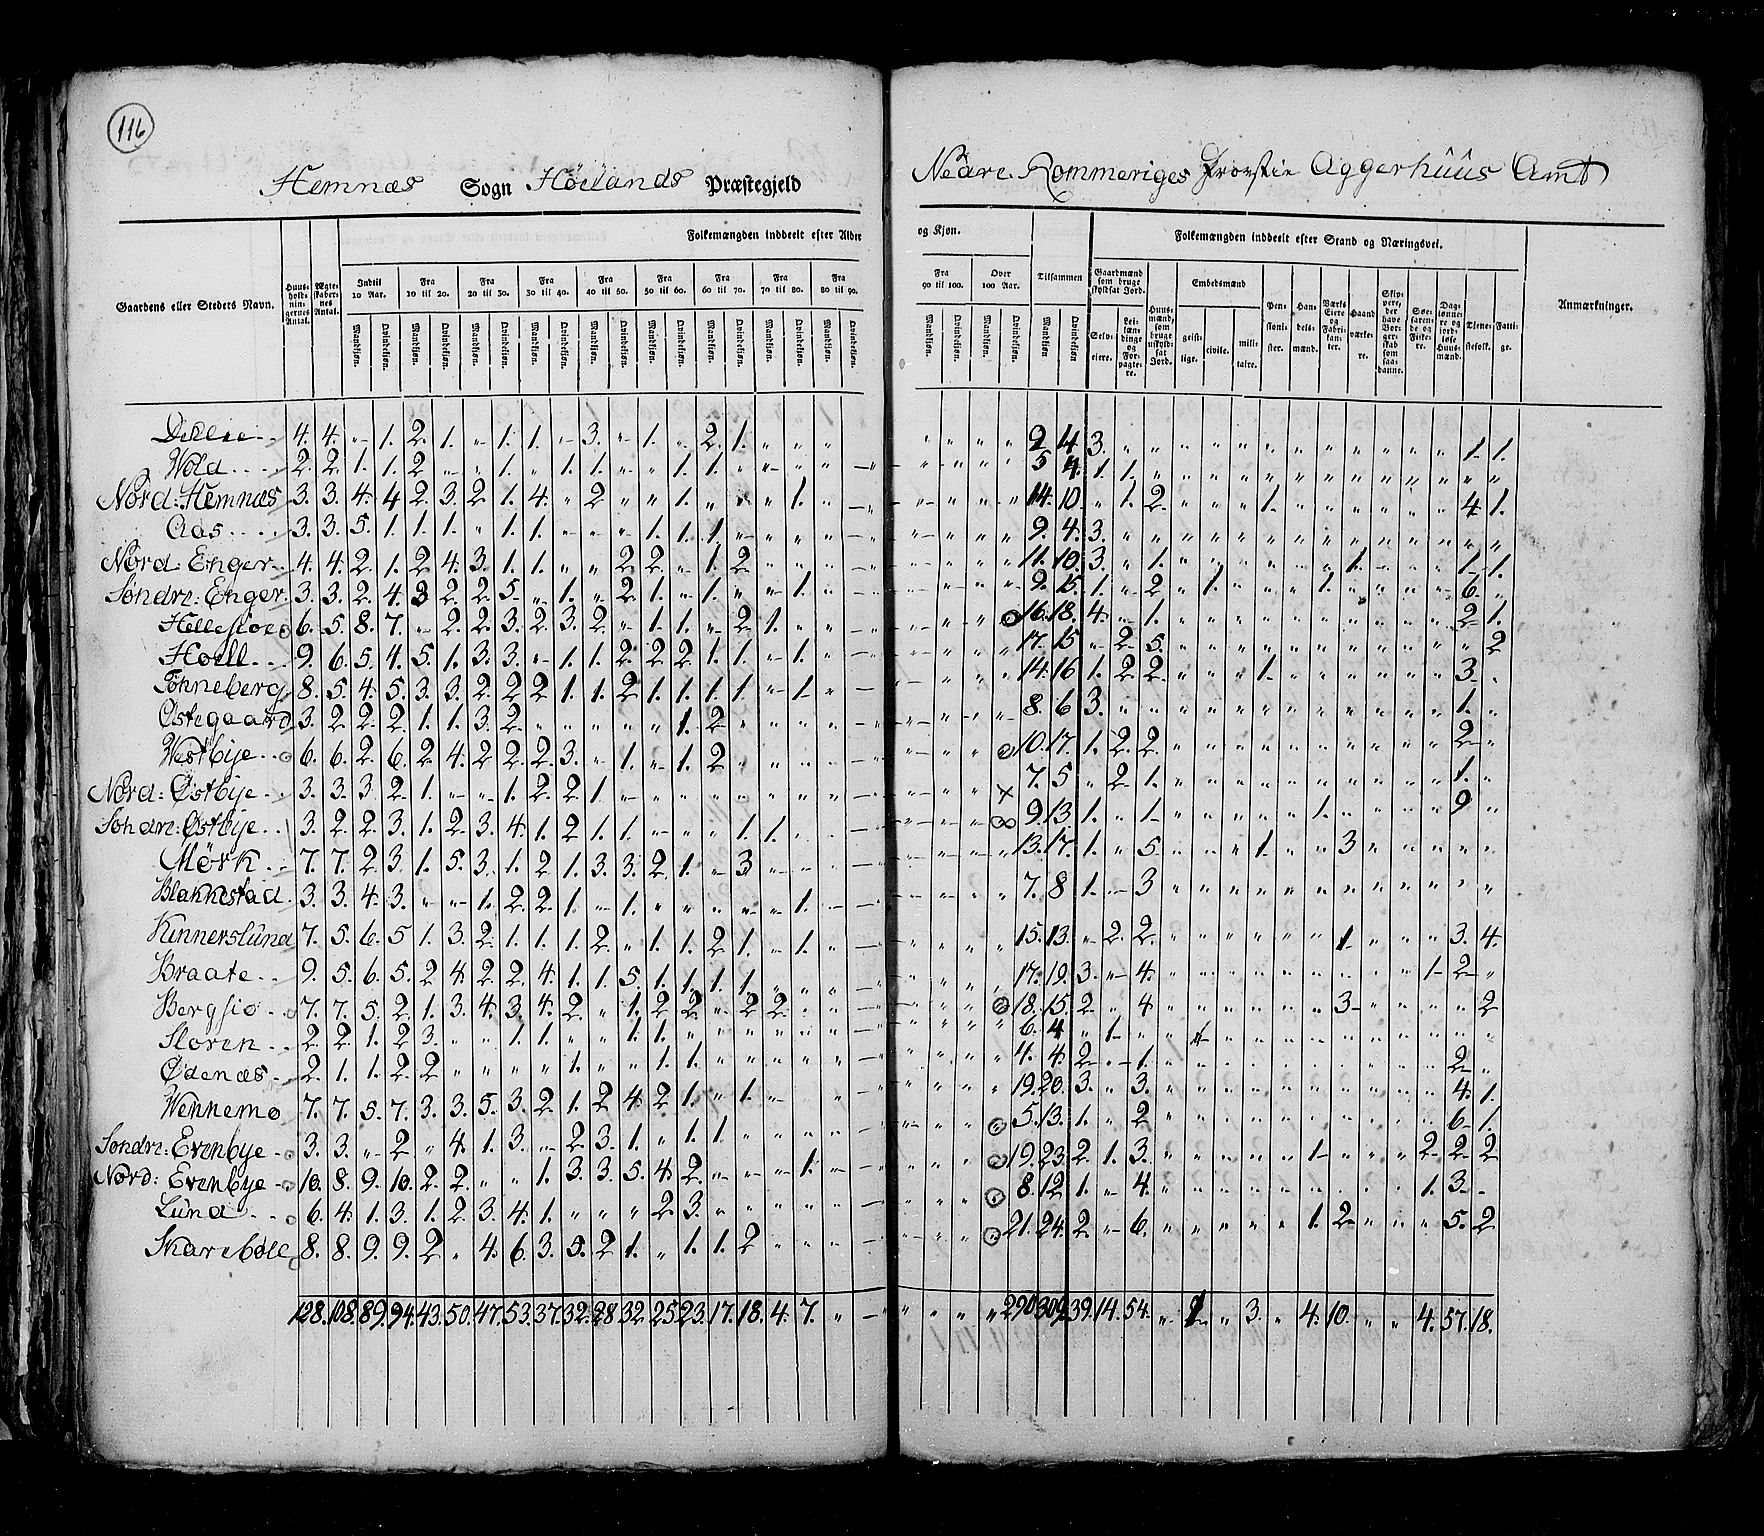 116
Hemnæs Sogn Hølands Præstegjeld
Nedre Rommeriges Provstie Aggerhuus Amt
Gaardens eller Stedets Navn.
Huus-holdningernes Antal.
Ægteskabernes Antal.
Folkemængden inddeelt efter Alder og Kjøn.
Indtil 10 Aar. Fra 10 til 20. Fra 20 til 30. Fra 30 til 40. Fra 40 til 50. Fra 50 til 60. Fra 60 til 70. Fra 70 til 80. Fra 80 til 90. Fra 90 til 100. Over 100 Aar. Tilsammen
Mandkjøn. Qvindekjøn.
Folkemængden inddeelt efter Stand og Næringsvei.
Gaardmænd som bruge skyldsat Jord.
Selveiere.
Leilændinge og Forpagtere.
Huusmænd, som bruge uskyldsat Jord.
Embedsmænd
geistlige. civile. militaire.
Pensionister.
Handelsmænd.
Værks Eiere og Fabrikanter.
Haandværkere.
Skippere, der have Borgerskab som saadanne.
Søefarende og Fiskere.
Daglønnere og jordløse Huusmænd.
Tjenestefolk.
Fattige.
Anmærkninger.
Wold 2. 2. 1. 1. 2 " " 1. " 1. 1. " " 1. 1. " 5 4. 1. 1.
Nord: Hemnæs 3. 3. 4. 4 2. 3. 2. 1. 4. " 2 " " 1. " " " 1. 14. 10. " 1. 2. 1. 4. 1.
Aas 3. 3. 5. 1. 1. 1. " 1. 1. " " " 1. 1. 1. 9. 4. 3.
Nord: Enger 4. 4. 2. 1. 2. 4. 3. 1. 1. " " 2. 2. " 1. 2 11. 10. 3. " 1. 1. 1. 1.
Søndre: Enger 3. 3. 2. 4. 3 2. 2. 5. " 1. " 2. 1. " 1. " " 1. 9. 15. 1. " 2. " 1. 1. 6.
Hellesiøe 6. 5. 8. 7. " 2. 2. 3. 2. 3. 2. " 1. 1. " 2. 1. 16. 18. 4. " 1. 2. 1.
Hoell 9. 6. 5. 4. 5. 1. 3. 3. " 1. 1. 2. 2. 2. 1. 1. " 1. 17. 15 " 2. 5. 2
Tønneberg 8. 5. 4. 5. 3. 3. 2. 2. 2. 1. 1. 2. 1. 1. 1. 1. " 1. 14. 16 1. 2. 2. 1. 3.
Østegaard 3. 2. 2. 2. 1. 1. 3. 2. " " " " " 1. 2 8. 6 3. 1.
Westbÿe 6. 6. 2. 6. 2. 4. 2. 2. 2. 3. " 1. " 1. 2 10. 17. 1. 2. 2. 2.
Nord: Østbÿe 3. 3. 3. 2. 1. " " 1. 2. 2. 1 7. 5 " 2. 1. 1.
Søndre: Østbÿe 3. 2. 2. 3. 1. 2. 3. 4. 1. 2. 1. 1. " " " 1. 1. 9. 13. 1. " 1. 1. 9
Mörk 7. 7. 2. 3. 1. 5. 3. 1. 2. 1. 3. 3. 2. 1. " 3. 13. 17. 1. " 5. 1. 3
Blakkestad 3. 3. 4. 3. " " 1. 2. 2. 1. " 1. " " " " " 1. 7. 8 1. " 3
Kinnerslund 7. 5. 6. 5 1. 3. 2. 1. 1. 1. 2. " 1. 1. 2. 1. " 1. 15. 13. " 2. 2. 1. 3. 4.
Braate 9. 5. 6. 5. 2. 4. 2. 2. 4. 1. 1. 5. 1. 1. 1. 1. 17. 19. 3. " 4. 1. 2.
Bergsiø 7. 7. 5. 2. 1. 3. 4. 3. 4. 2. " 1. 2. 2. " 2. 2. 18. 15. 2. " 4 3 2
Sloren 2. 2. 1. 2. 3. " " 1. 1. " " 1. 1. 6. 4 " 1.
Ødenæs 2. 1. 1. 2. 2. " " " " 1. " " 1. 1. 4. 4. 2. " 1. 2.
Wennemo 7. 7. 5. 7. 3. 3. 5. 3. 2. 1. 2. 4. 2. 1. " 1. 19. 20. 3. " 3. 4. 1.
Søndre: Evenbye 3. 3. " 2. " 4. 1. 3. " 2. 3. 1. " 1. 1. 5. 13. 1. " 2 6. 1.
Nord: Evenbye 10. 8. 9. 10. 2. 2. " " 1. 3. 3. 5. 4. 2. " " " 1. 19. 23. 2. 1. 3. 1. 2. 2. 2
Lund 6. 4. 1. 3. 1. 2. 3. 4. 1. " " " 2. 3. 8. 12. 1. " 4. 1. 3.
Skarebøll 8. 8. 9. 9. 2. " 4. 6. 3. 5. 2. 1. " 1. 1. 2 21. 24. 2. " 6. 1. 2. 5. 2.
128. 108. 89. 94. 43. 50. 47. 53. 37. 32. 28 32. 25. 23. 17. 18. 4. 7. 290 309 39. 14. 54. 3. 4. 10. 4. 57. 18.